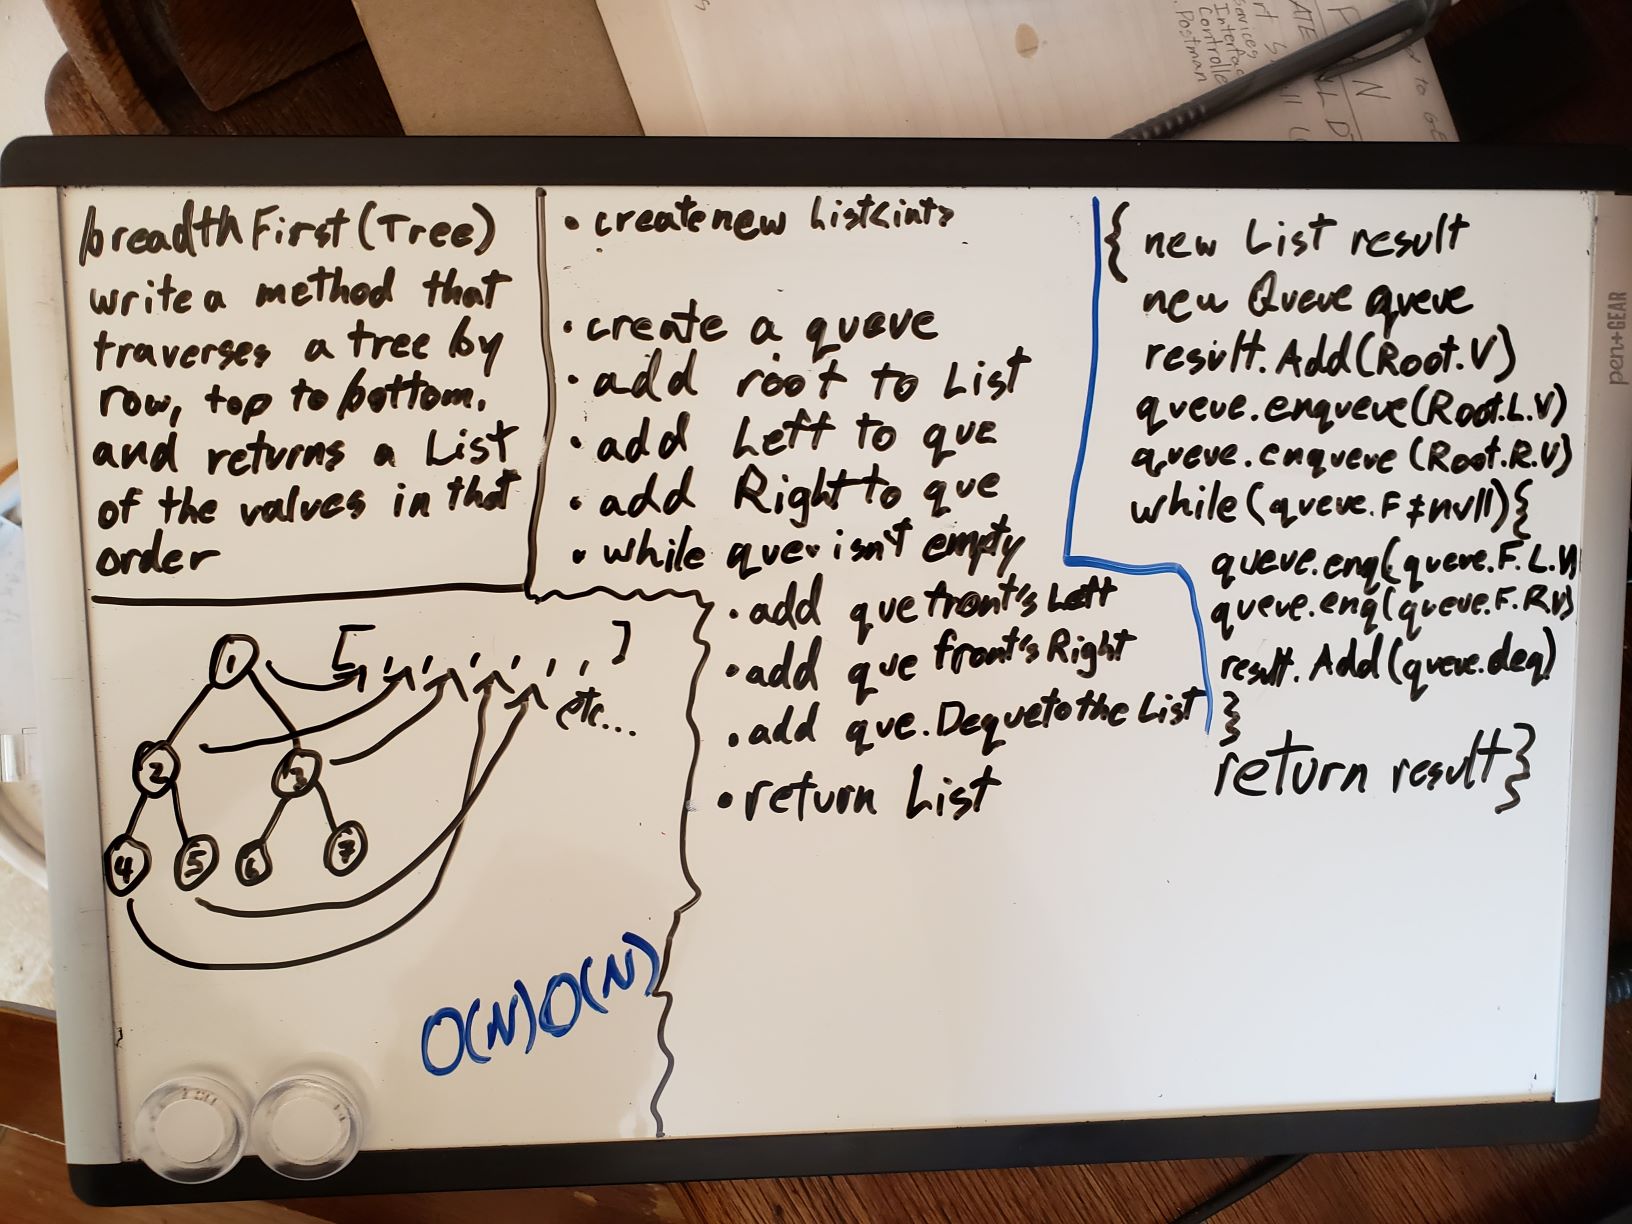 breadthFirst(Tree)
write a method that
traverses a tree by
row, top to bottom,
and returns a List
of the values in that
order
• create new List<int>
• create a queue
• add root to List
• add Left to que
• add Right to que
• while que isn't empty
• add que front's Left
• add que front's Right
• add que.Deque to the List
• return List
{ new List result
new Queue queue
result.Add(Root.V)
queue.enqueue(Root.L.V)
queue.enqueue(Root.R.V)
while(queue.F ≠ null){
queue.enq(queue.F.L.V)
queue.enq(queue.F.R.V)
result.Add(queue.deq)
}
return result}
[ , , , , , , ]
etc...
1
2 3
4 5 6 7
O(N) O(N)
pen+GEAR
Interfac
Controlle
Postman